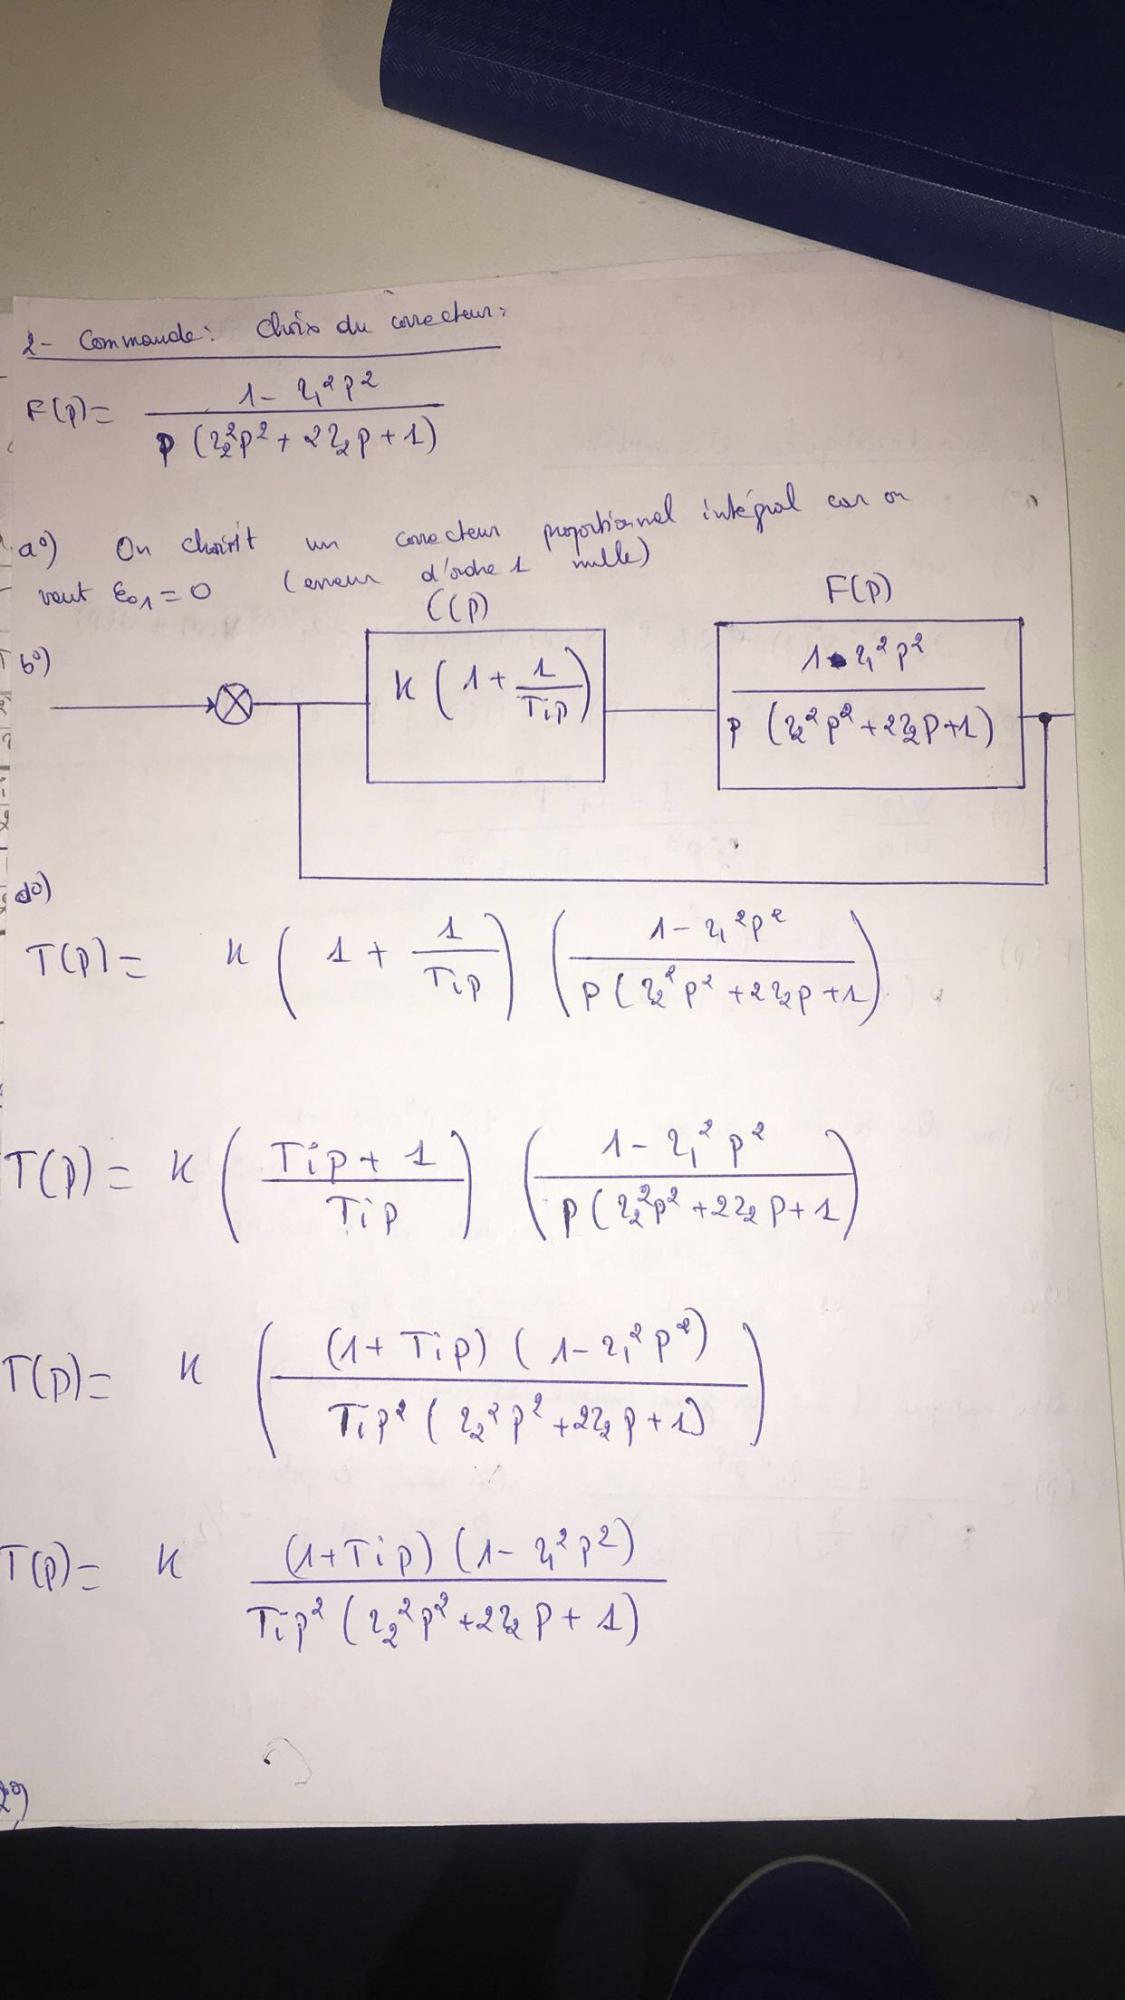 2- Commande: Choix du correcteur:
F(p)= (1 - τ₁²p²) / (p (τ₂²p² + 2τ₂p + 1))
a°) On choisit un correcteur proportionnel intégral car on
veut ε₀₁ = 0 (erreur d'ordre 1 nulle)
C(p) F(p)
b°) K (1 + 1/Tip) (1 - τ₁²p²) / (p (τ₂²p² + 2τ₂p + 1))
d°)
T(p) = K (1 + 1/Tip) ((1 - τ₁²p²) / (p (τ₂²p² + 2τ₂p + 1)))
T(p) = K ((Tip + 1) / Tip) ((1 - τ₁²p²) / (p (τ₂²p² + 2τ₂p + 1)))
T(p) = K (((1 + Tip) (1 - τ₁²p²)) / (Tip² (τ₂²p² + 2τ₂p + 1)))
T(p) = K ((1 + Tip) (1 - τ₁²p²)) / (Tip² (τ₂²p² + 2τ₂p + 1))